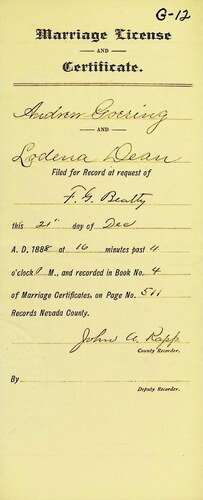 G-12
Marriage License
AND
Certificate.
Andrew Goering
AND
Lodena Dean
Filed for Record at request of
F. G. Beatty
this 21st day of Dec
A. D. 1888 at 16 minutes past 11
o'clock P M., and recorded in Book No. 4
of Marriage Certificates, on Page No. 511
Records Nevada County.
John A. Rapp
County Recorder.
By
Deputy Recorder.